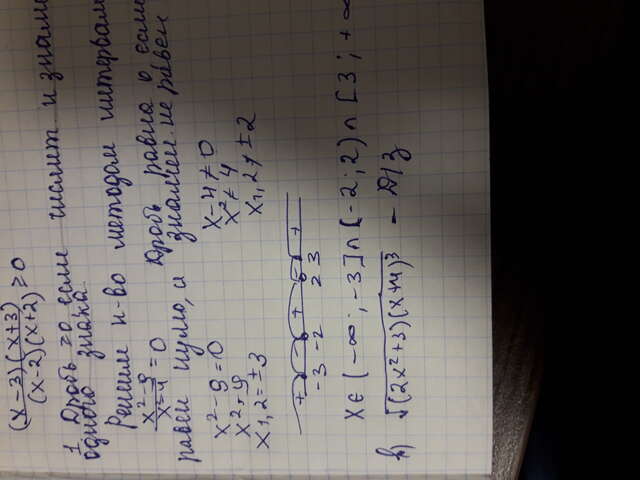 (x-3)(x+3)
(x-2)(x+2) ≥ 0
1. Дробь ≥0, если числит и знаме
одного знака.
Решим н-во методом интервал
x²-9
x²-4 = 0 Дробь равна 0, если
равен нулю, а знамен. не равен
x²-9=0 x-4≠0
x²=9 x²≠4
x1,2=±3 x1,2≠±2
+ - + - +
-3 -2 2 3
x∈(-∞; -3]∩(-2; 2)∩[3; +∞
√(2x²+3)(x+4)³ - Д/з